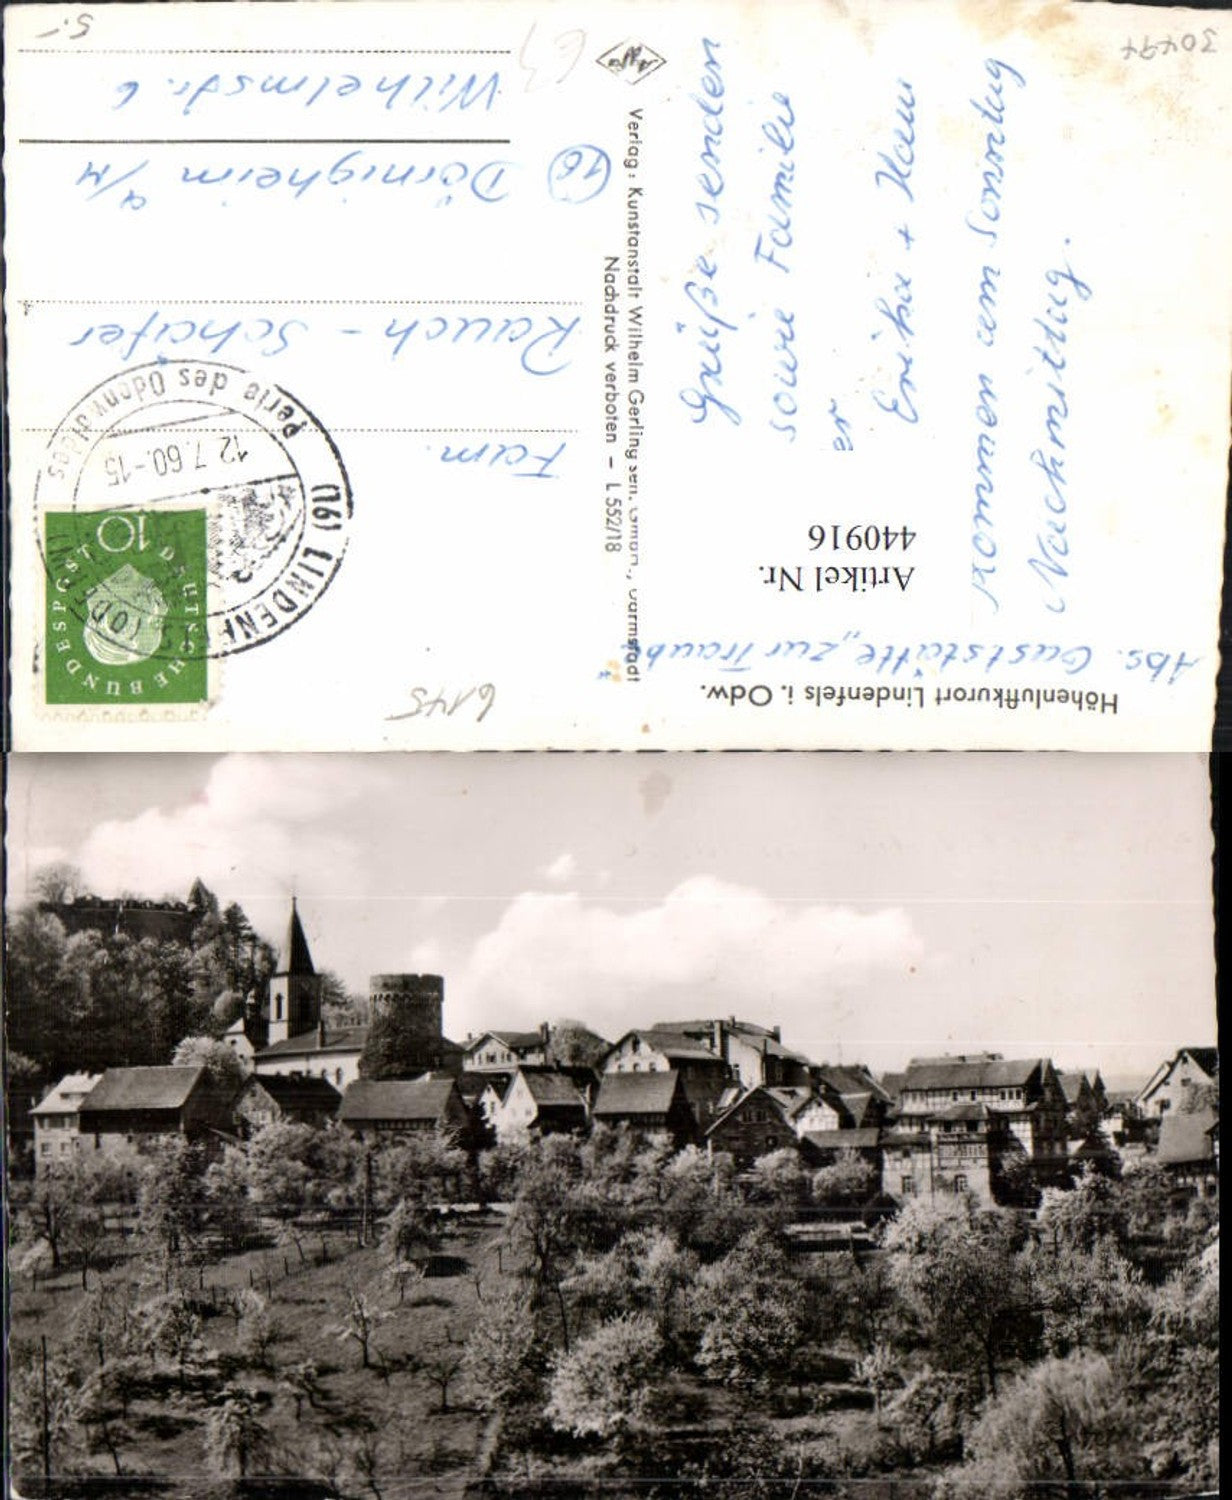 Höhenluftkurort Lindenfels i. Odw.
Abs. Gaststätte „Zur Traube"
Artikel Nr.
440916
Grüße senden
sowie Familie
er
Erika + Hans
Kommen am Sonntag
Nachmittag.
Verlag: Kunstanstalt Wilhelm Gerling sen., Darmstadt
Nachdruck verboten – L 552/18
Agfa
(16) LINDENFELS (ODENW)
12.7.60.-15
Perle des Odenwaldes
DEUTSCHE BUNDESPOST
10
Fam.
Rauch - Schäfer
(16) Dörnigheim a/M
Wilhelmstr. 6
6145
30477
63
5.-